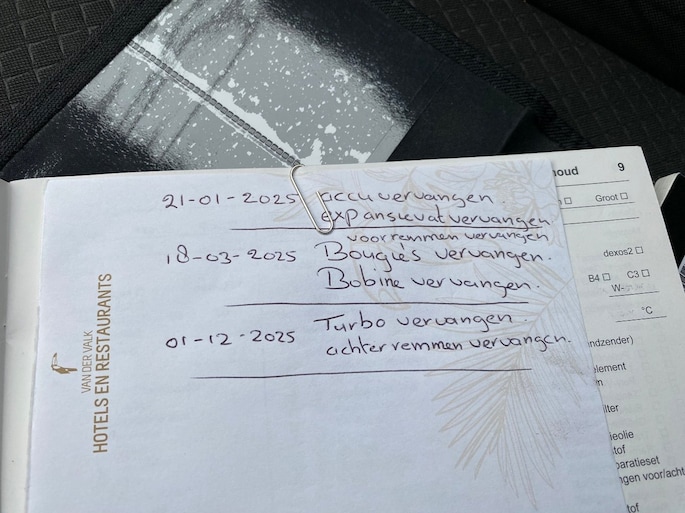 21-01-2025 accu vervangen.
expansievat vervangen
voorremmen vervangen
18-03-2025 Bougiés vervangen.
Bobine vervangen.
01-12-2025 Turbo vervangen.
achter remmen vervangen.
VAN DER VALK
HOTELS EN RESTAURANTS
houd 9
Groot
dexos2
B4 C3
W-
°C
ndzender)
element
n
lter
ieolie
tof
paratieset
ngen voor/acht
tof